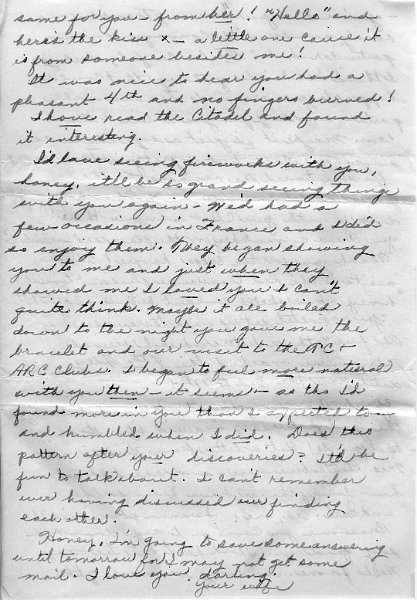 same for you - from her! "Hello" and
here's the kiss x - a little one cause it
is from someone besides me!
It was nice to hear you had a
pleasant 4th and no fingers burned!
I have read the Citadel and found
it interesting.
I'd love seeing fireworks with you,
honey, it'll be so grand seeing things
with you again - We'd had a
few occasions in France and I did
so enjoy them. They began showing
you to me and just when they
showed me I loved you I can't
quite think. Maybe it all boiled
down to the night you gave me the
bracelet and our visit to the
ARC Clubs. I began to feel more natural
with you then - it seems - as tho I'd
found more in you than I expected to -
and humbled when I did. Does this
pattern after your discoveries? It'd be
fun to talk about. I can't remember
ever having discussed our finding
each other.
Honey, I'm going to save some answering
until tomorrow for I may not get some
mail. I love you, darling.
Your wife